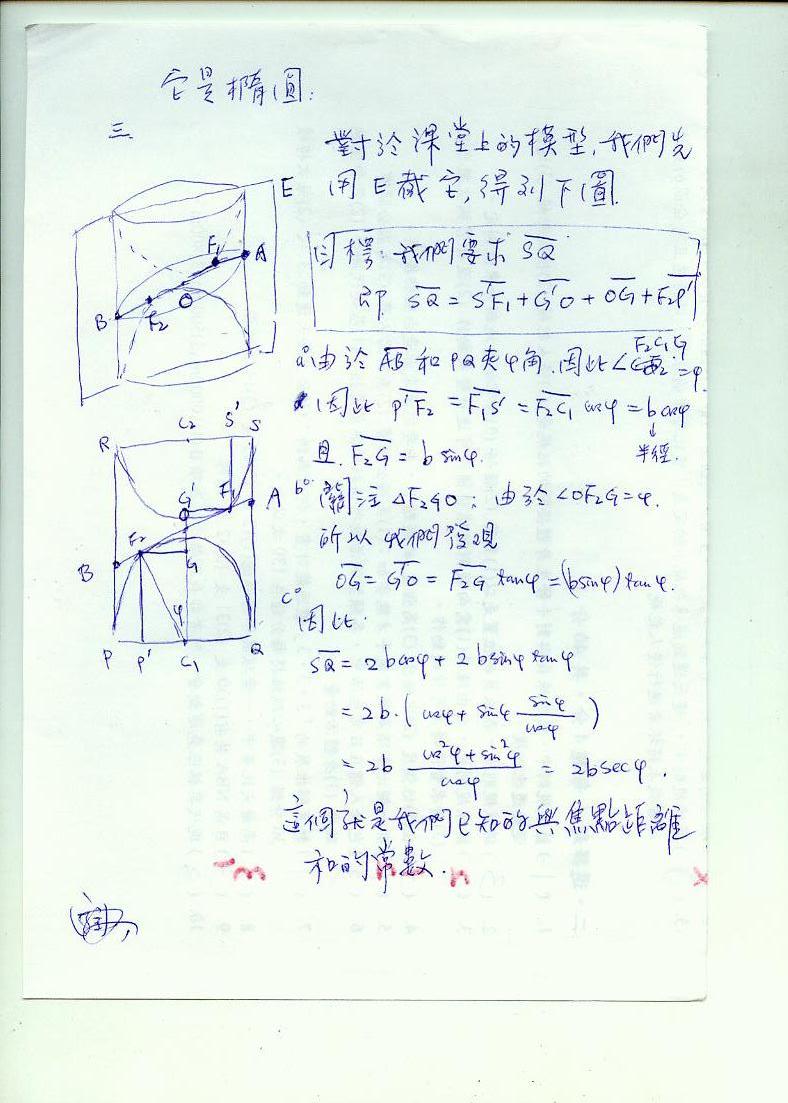 它是橢圓:
三.
對於課堂上的模型,我們先
用E截它,得到下圖.
E
F₁
A
B
F₂
O
目標:我們要求 S̅Q̅
即 S̅Q̅ = S̅'F̅₁ + G̅'O̅ + O̅G̅ + F̅₂P̅'
a° 由於 A̅B̅ 和 PQ 夾φ角.因此∠F₂C₁G = φ.
因此 P̅'F̅₂ = F̅₁S̅' = F̅₂C̅₁ cosφ = b cosφ
↓
半徑.
且. F̅₂G̅ = b sinφ.
R
C₂
S'
S
G'
F₁
A
O
F₂
B
G
φ
P
P'
C₁
Q
b° 關注 △F₂GO ; 由於 ∠OF₂G = φ.
所以 我們發現
O̅G̅ = G̅'O̅ = F̅₂G̅ tanφ = (b sinφ) tanφ.
c°
因此.
S̅Q̅ = 2b cosφ + 2b sinφ tanφ
= 2b·( cosφ + sinφ sinφ/cosφ )
= 2b (cos²φ + sin²φ)/cosφ = 2b secφ.
這個就是我們已知的與焦點距離
和的常數.